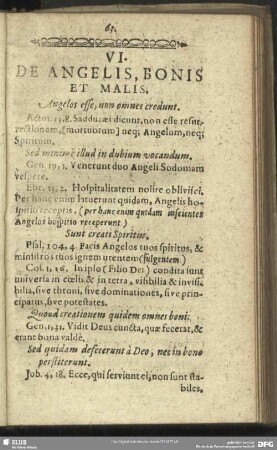 67.
VI.
DE ANGELIS, BONIS
ET MALIS.
Angelos esse, non omnes credunt.
Actor. 23. 8. Sadducæi dicunt, non esse resur-
rectionem, (mortuorum) neq; Angelum, neq;
Spiritum.
Sed minimè illud in dubium vocandum.
Gen. 19, 1. Venerunt duo Angeli Sodomam
vespere.
Ebr. 13, 2. Hospitalitatem nolite oblivisci.
Per hanc enim latuerunt quidam, Angelis ho-
spitio receptis, (per hanc enim quidam inscientes
Angelos hospitio receperunt)
Sunt creati Spiritus.
Psal. 104, 4. Facis Angelos tuos spiritus, &
ministros tuos ignem urentem (fulgentem)
Col. 1, 16. In ipso (Filio Dei) condita sunt
universa in cœlis & in terra, visibilia & invisi-
bilia, sive throni, sive dominationes, sive prin-
cipatus, sive potestates.
Quoad creationem quidem omnes boni.
Gen. 1, 31. Vidit Deus cuncta, quæ fecerat, &
erant bona valdè.
Sed quidam defecerunt à Deo, nec in bono
perstiterunt.
Job. 4, 18. Ecce, qui serviunt ei, non sunt sta-
biles,